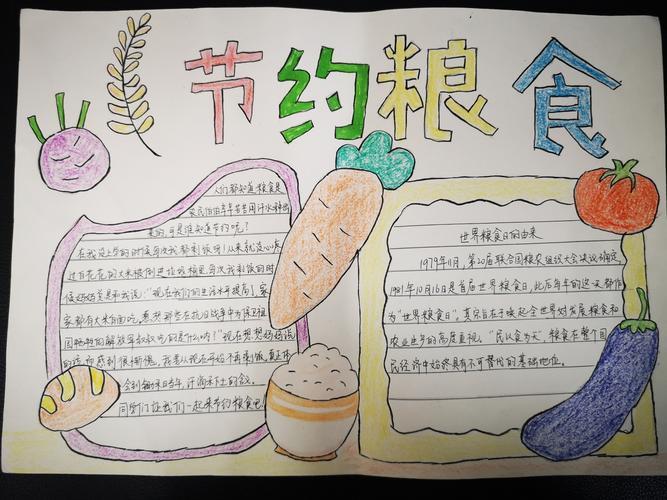 节约粮食
人们都知道粮食是
农民伯伯年年苦苦用汗水种出
来的,可是谁知道节约呢?
在我没上学的时候每次我都剩饭,从来就没心疼
过白花花的大米被倒进垃圾桶里,每次我剩饭的时
候妈妈总是和我说:"现在我们的生活水平提高了,家
家都有大米白面吃,想想那些在抗日战争中为保卫祖
国牺牲的解放军叔叔吃的是什么呀?"现在想想妈妈说
的话,我感到很惭愧,我要从现在开始不再剩饭,真正体
会到锄禾日当午,汗滴禾下土的含义。
同学们让我们一起来节约粮食吧!
世界粮食日的由来
1979年11月,第20届联合国粮农组织大会决议确定,
1981年10月16日是首届世界粮食日,此后每年的这一天都作
为"世界粮食日",其宗旨在于唤起全世界对发展粮食和
农业生产的高度重视。"民以食为天",粮食在整个国
民经济中始终具有不可替代的基础地位。